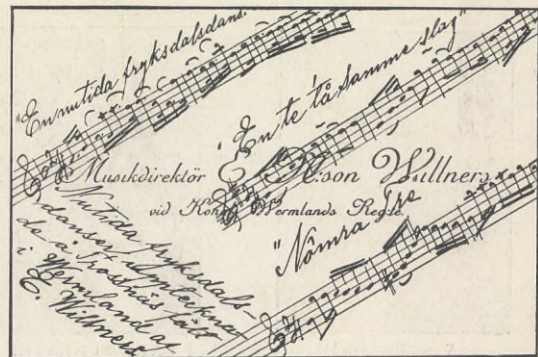 "En nutida fryksdalsdans."
"En te' tå samme slag"
Musikdirektör E. R:son Willners
vid Kongl. Wermlands Reg:te.
"Nômra tre
Nutida fryksdals-
danser, uppteckna-
de å Trossnäs fält
i Wermland af
E. Willners.